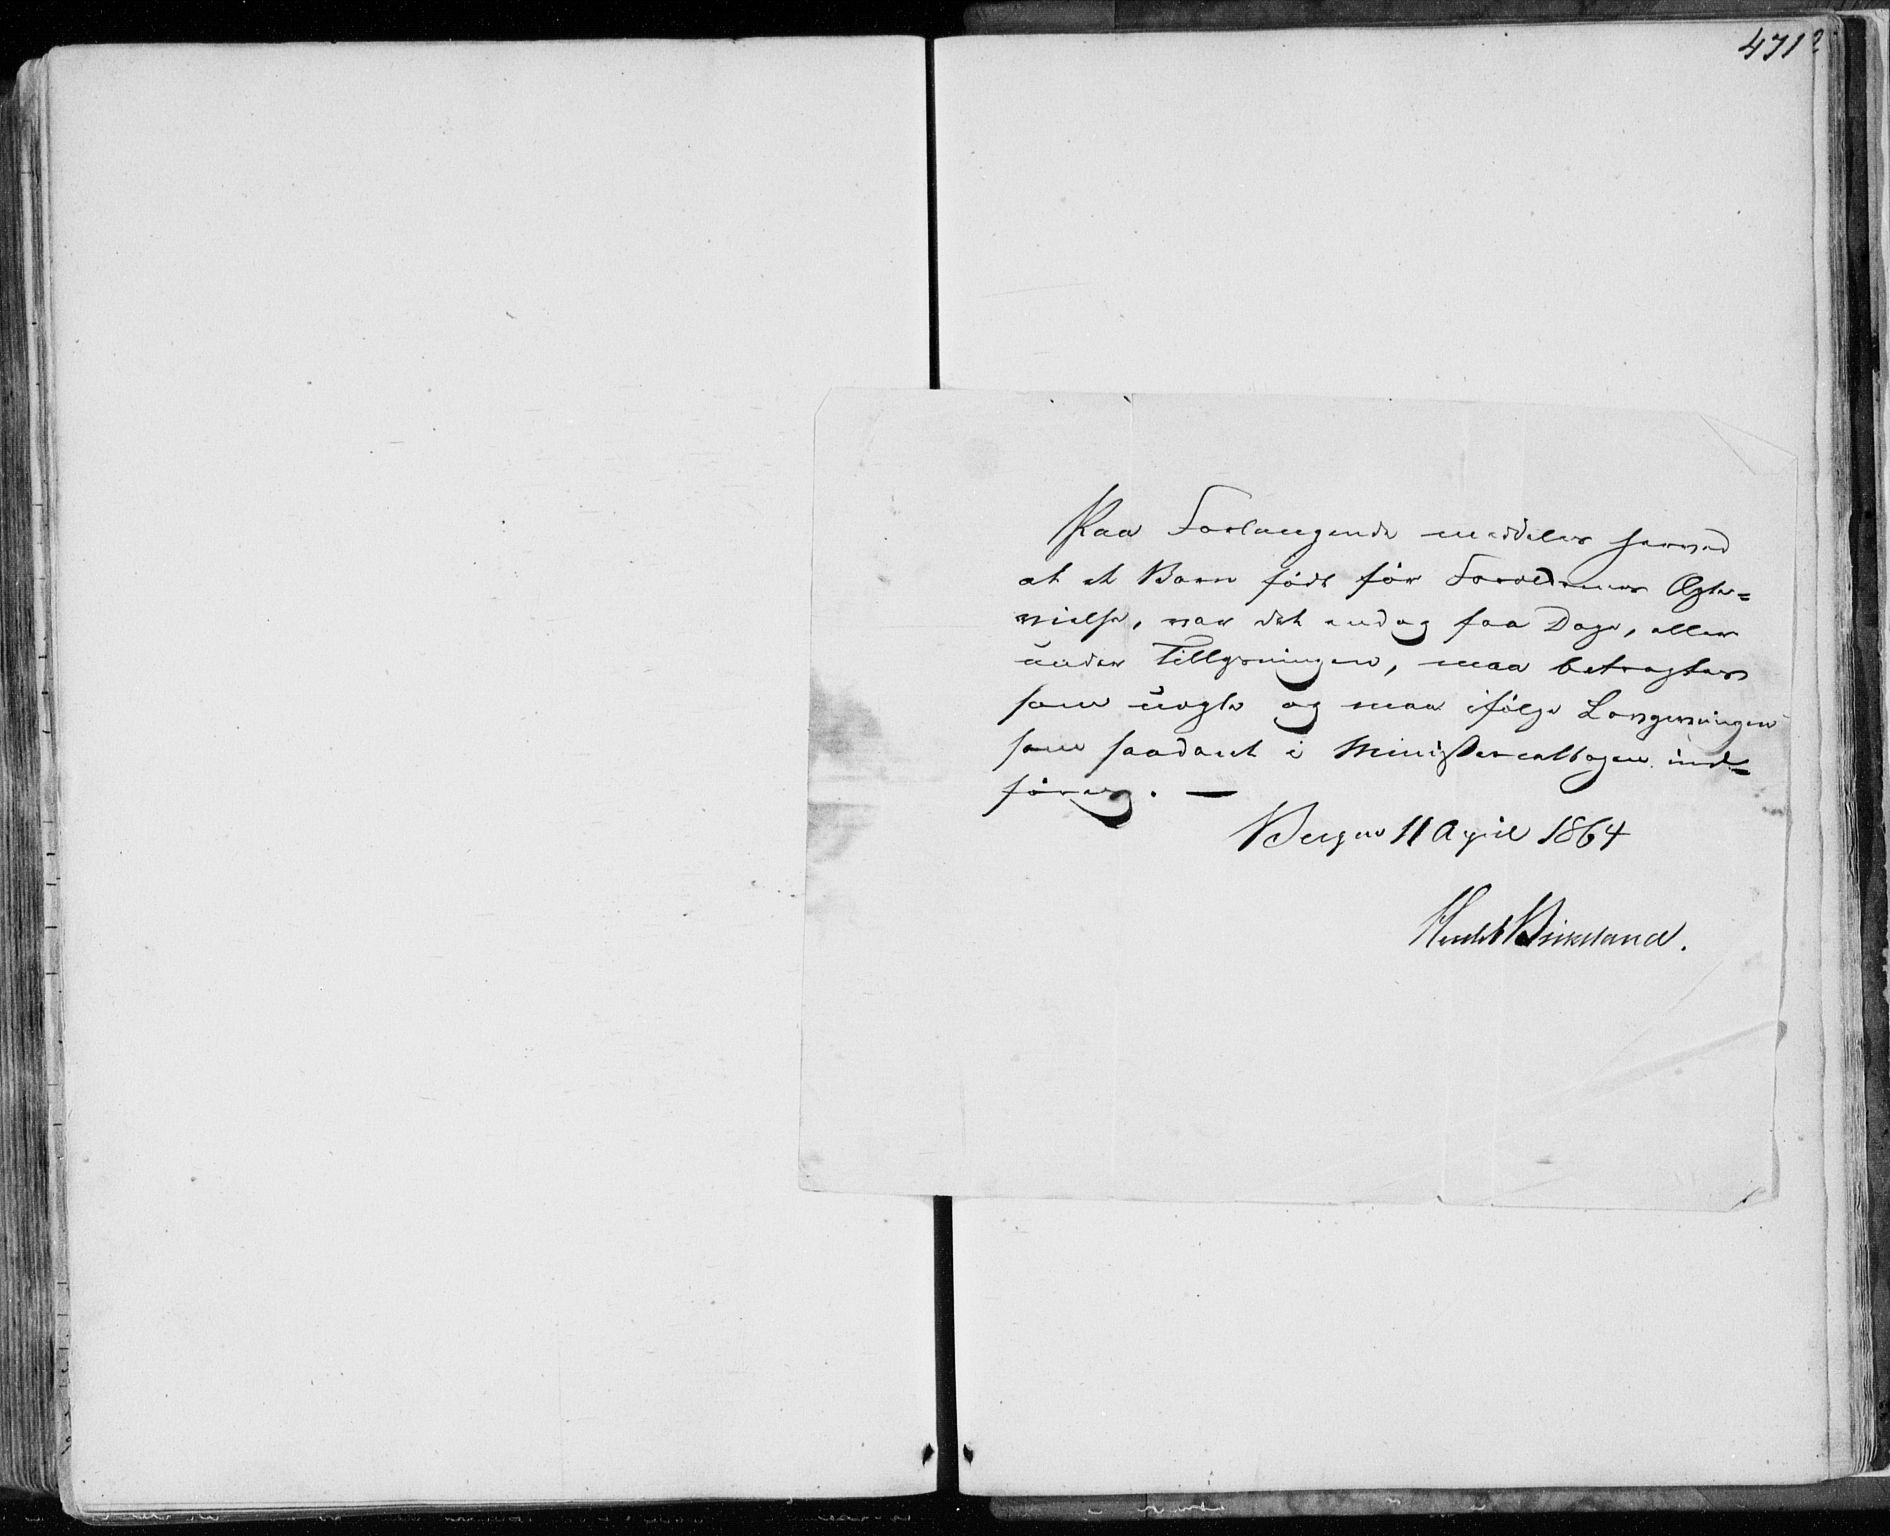 471
Paa Forlangende meddeles herved
at et Barn født før Forældrenes Ægte=
vielse, var det endog faa Dage, eller
under Tillysningen, maa betragtes
som uægte og maa ifølge Lovgivningen
som saadant i Ministerialbogen ind=
føres. —
Bergen 11 April 1864
Birkeland.